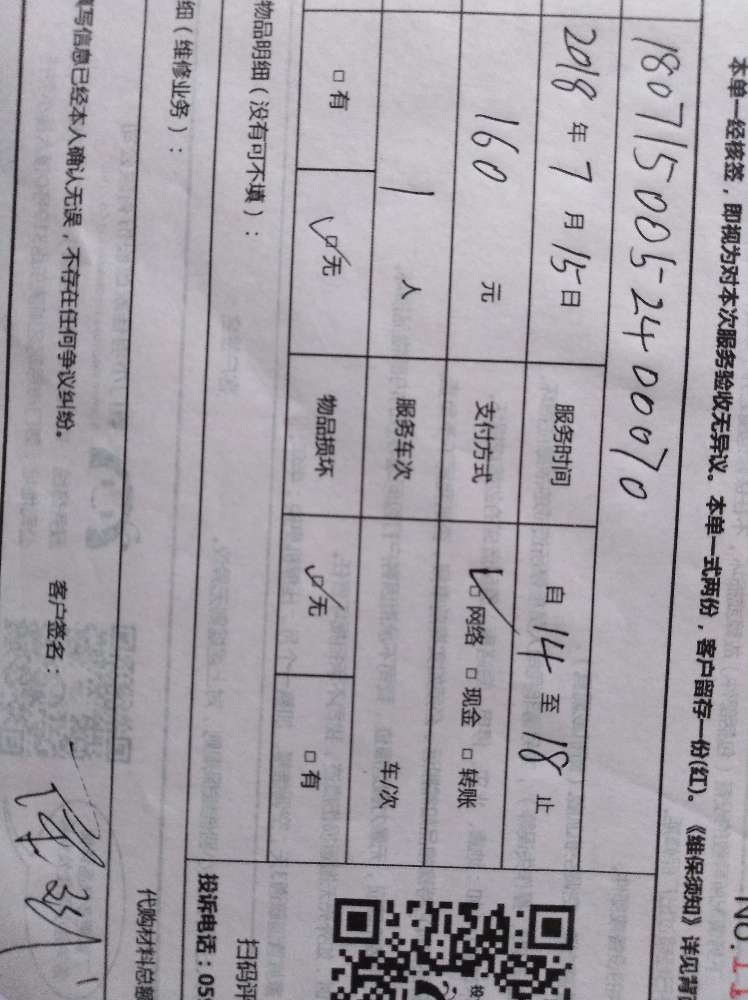 NO.11
本单一经核签，即视为对本次服务验收无异议。本单一式两份，客户留存一份(红)。《维保须知》详见背
180715005240070
2018 年 7 月 15 日 服务时间 自 14 至 18 止
160 元 支付方式 □ 网络 □ 现金 □ 转账
1 人 服务车次 车/次
□ 有 □ 无 物品损坏 □ 无 □ 有
物品明细（没有可不填）：
扫码评
投诉电话：055
细（维修业务）：
代购材料总额
填写信息已经本人确认无误，不存在任何争议纠纷。 客户签名：